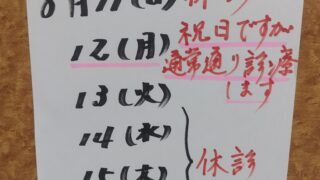 8月11(日)
12(月)
祝日ですが
通常通り診療
します
13(火)
14(水)
15(木)
休診